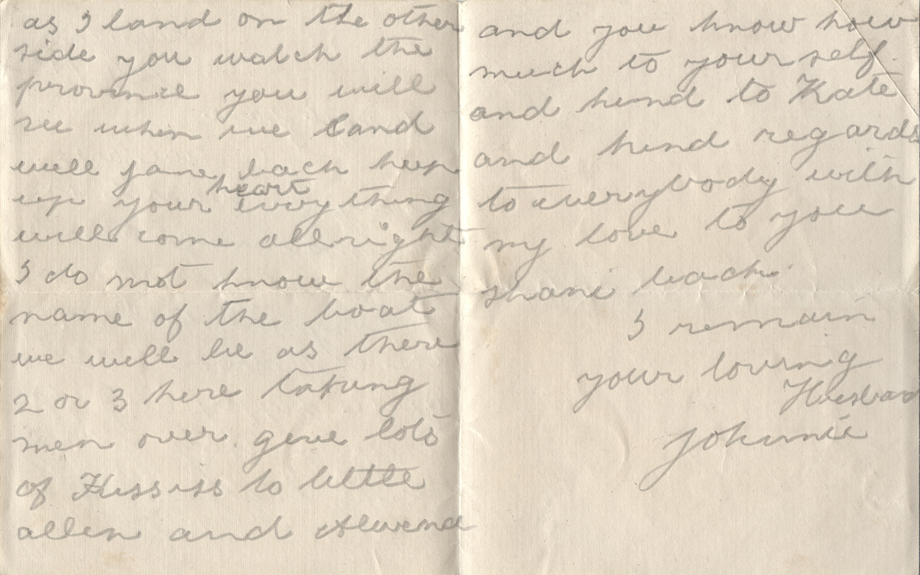 as I land on the other
side you watch the
province you will
see when we land
well jane bach keep
heart
up your every thing
will come allright
I do not know the
name of the boat
we will be as there
2 or 3 here taking
men over. give lots
of Kississ to little
allen and Alwena
and you know how
much to your self.
and kind to Kate
and kind regards
to everybody with
my love to you
shani bach.
I remain
your loving
Husban
Johnnie